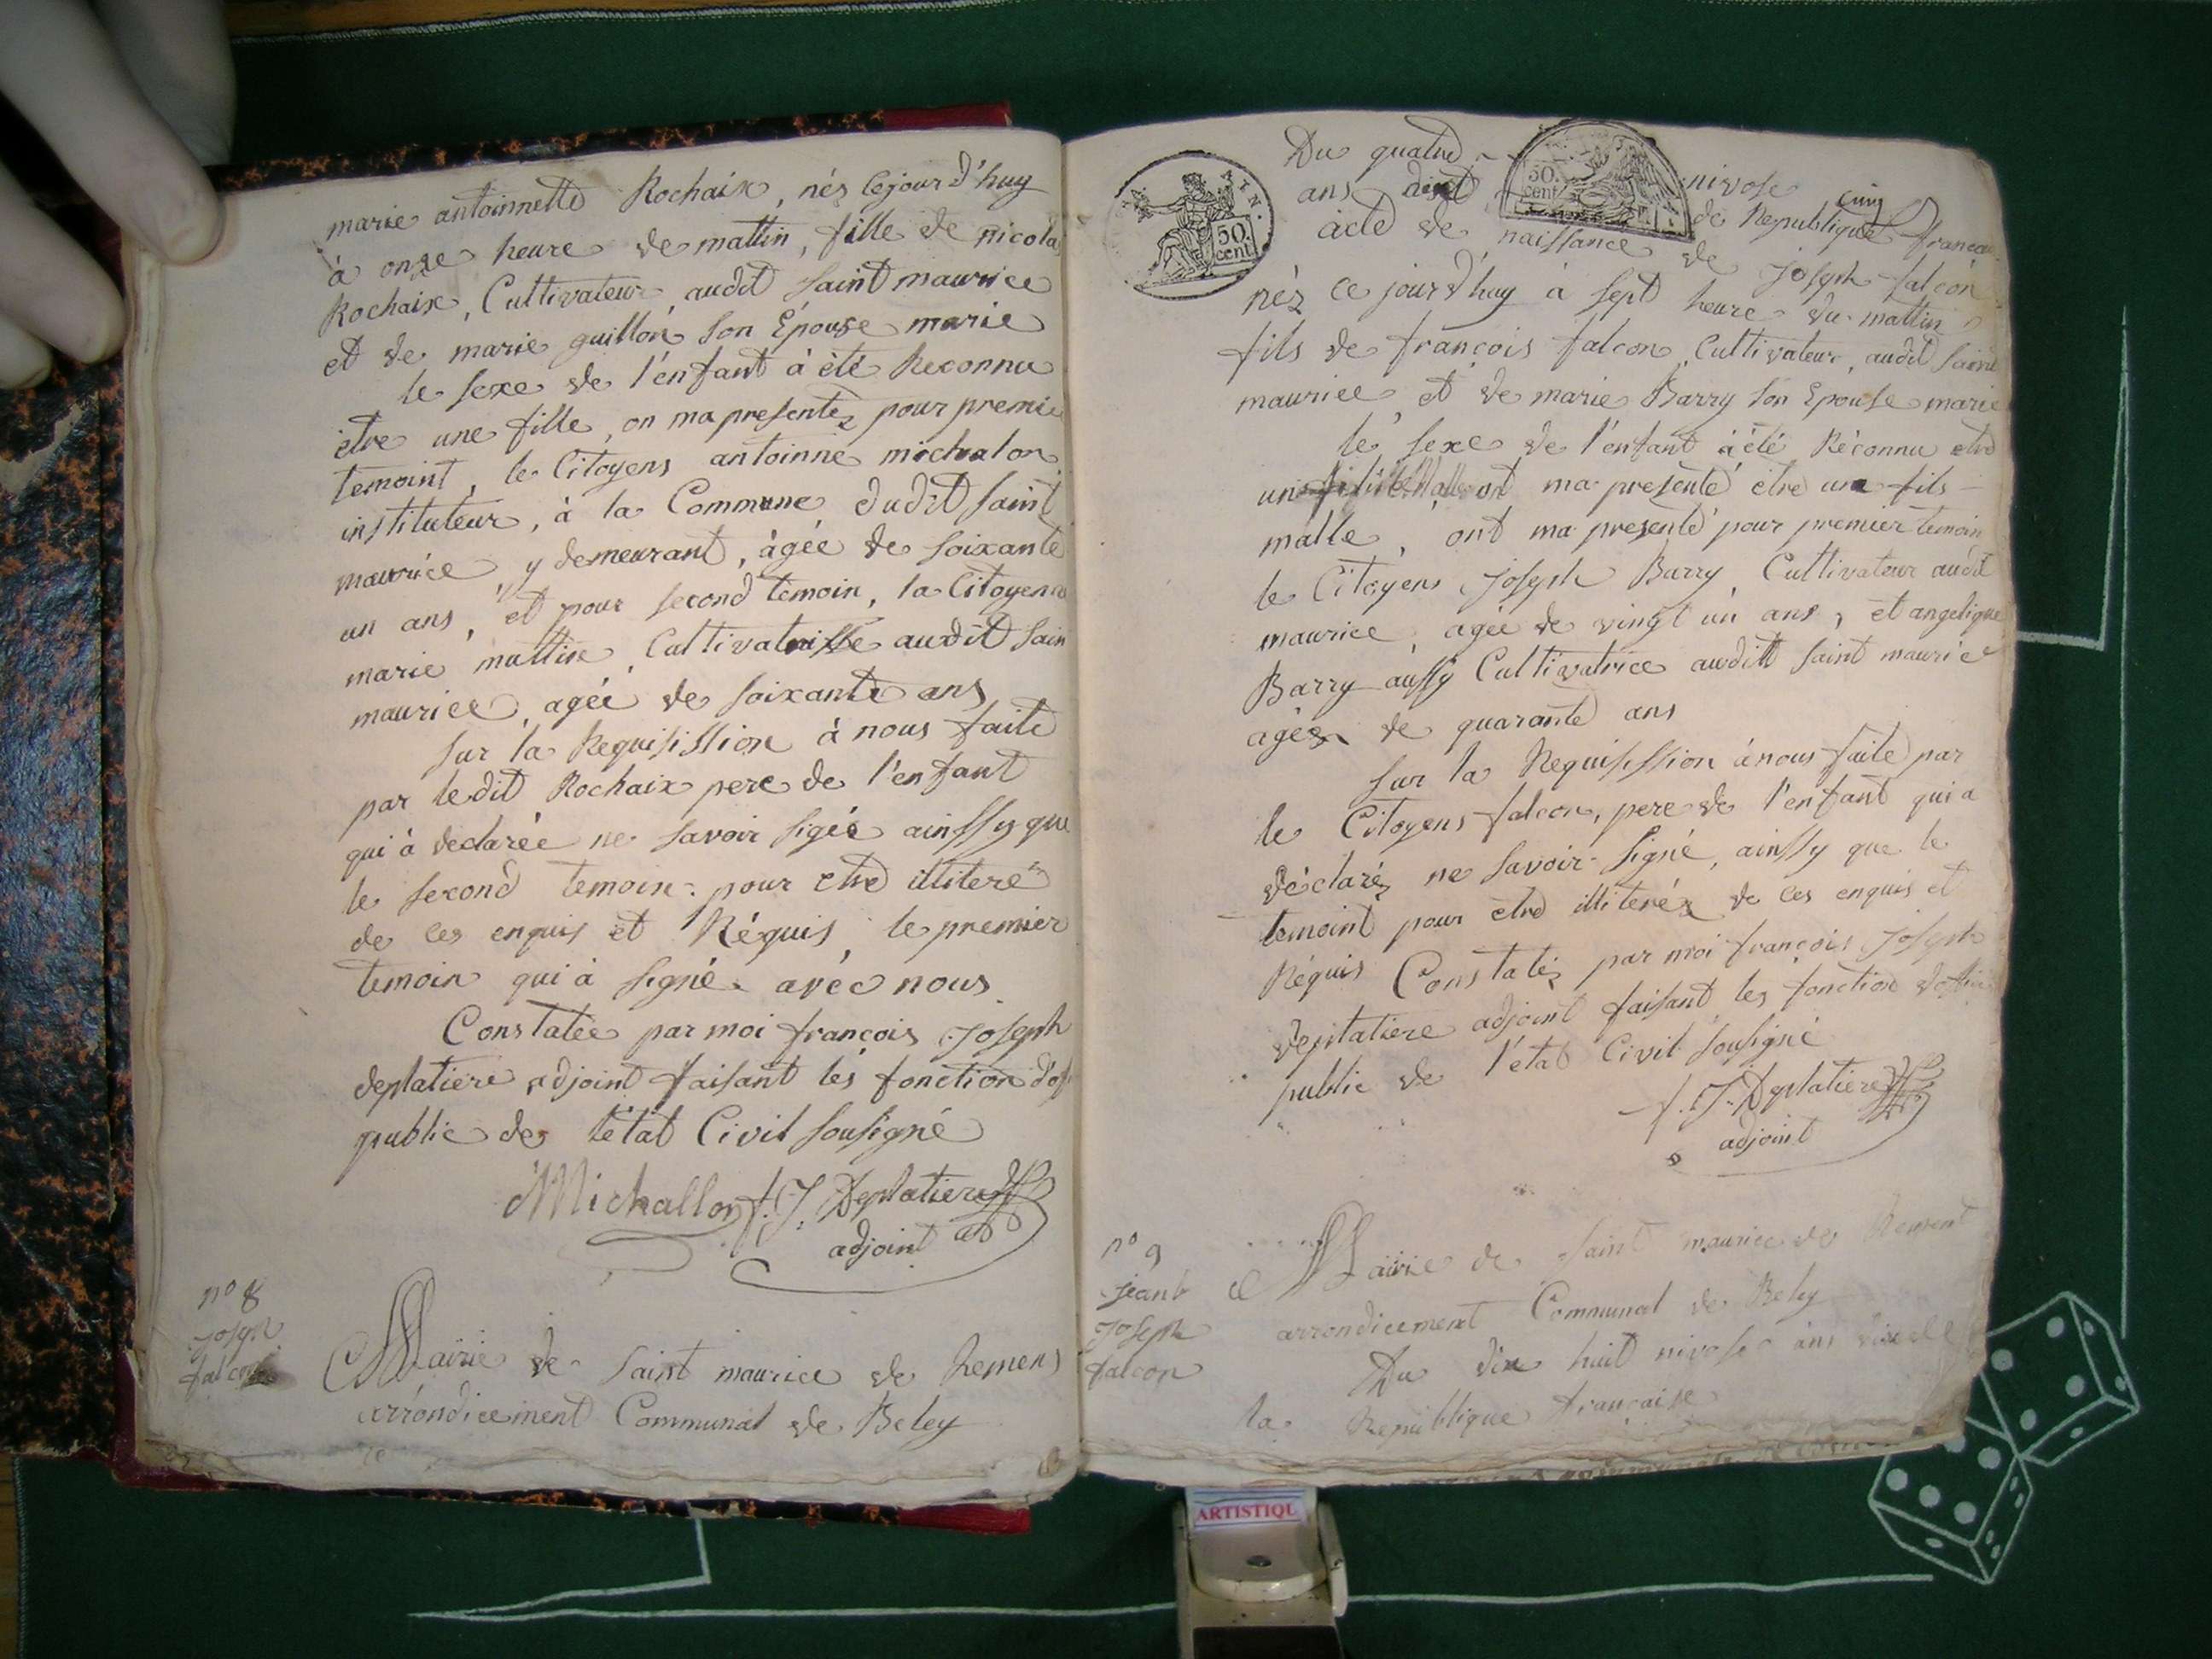 marie antoinnette Rochaix, nés cejour d'huy
à onze heure de mattin, fille de nicolas
Rochaix, Cultivateur audit saint maurice
et de marie guillon son Epouse marie
le sexe de l'enfant à été Reconnu
être une fille, on ma presentez pour premier
temoint, le Citoyens antoinne michalon
instituteur, à la Commune dudit saint
maurice y demeurant, àgée de soixante
un ans, et pour second temoin, la Citoyenne
marie mattin, Cultivatrisse audit sain
maurice, agée de soixante ans
sur la Requisission à nous faite
par ledit Rochaix pere de l'enfant
qui à declarée ne savoir sigée ainssy que
le second temoin pour etre illiteré
de ces enquis et Réquis, le premier
temoin qui à signé avéc nous
Constatée par moi françois Joseph
deplatiere adjoint faisant lés fonction d'of
public de l'état Civil sousigné
Michallon f. J. Deplatiere
adjoint
n° 8
Joseph
falcon
Mairie de saint maurice de Remens
arrondicement Communal de Beley
50. cent
50. cent
Du quatre nivose
ans dix de Republique françai
cinq
acte de naissance de Joseph falcon
néz ce jour d'huy à sept heure du mattin
fils de françois falcon, Cultivateur, audit saint
maurice, et de marie Barry son Epouse marie
le sexe de l'enfant àété Réconnu etre
un ont ma presenté etre un fils
malle, ont ma presenté pour premier temoin
le Citoyens Joseph Barry, Cultivateur audit
maurice, agée de vingt un ans, et angelique
Barry aussy Cultivatrice audit saint maurice
agée de quarante ans
sur la Requisission à nous faite par
le Citoyens falcon, pere de l'enfant qui a
déclaréz ne savoir signé, ainssy que le
temoint pour etre illiteréz de ces enquis et
Réquis Constatéz par moi françois Joseph
deplatiere adjoint faisant les fonction
public de l'état Civil sousigné
f. J. Deplatiere
adjoint
n° 9
jeant
Joseph
falcon
Mairie de saint maurice de Rement
arrondicement Communal de Beley
Du dix huit nivose ans dix de
la Republique française
ARTISTIQU